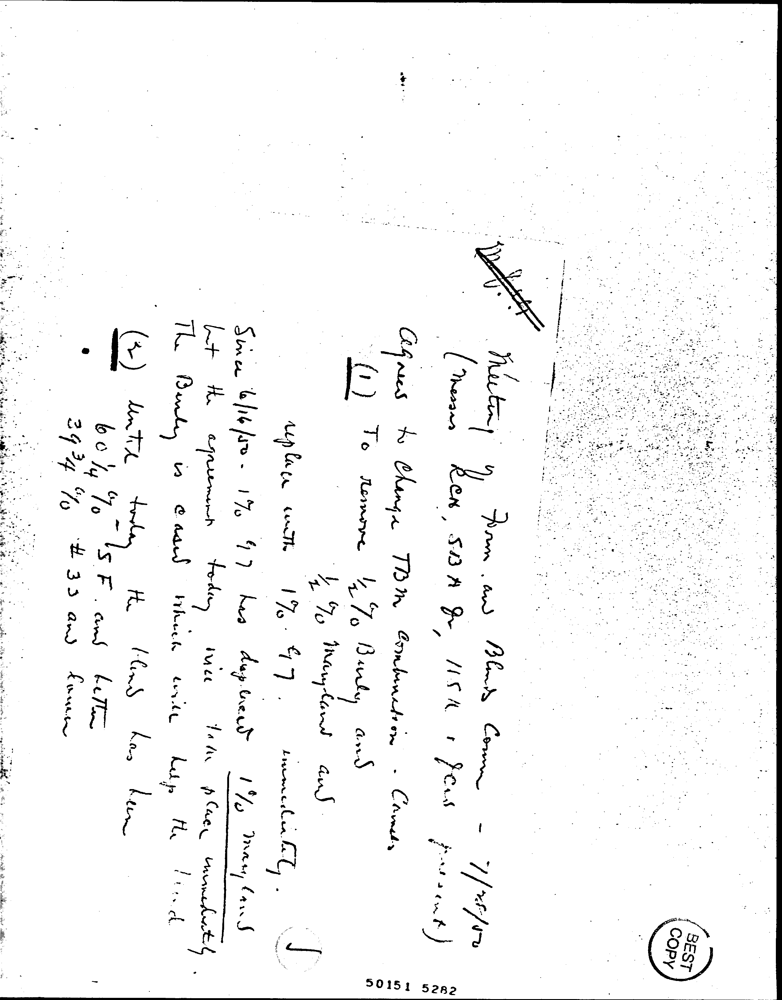 Meeting of Form. and Blends Comm - 7/25/50
(Messrs RCH, SBH Jr, present)
Agreed to change TBM combination. Camels
(1) To remove ½% Burley and
½% Maryland and
replace with 1% G7. immediately.
Since 6/16/50 - 1% G7 has displaced 1% Maryland
but the agreement today will take place immediately.
The Burley is cased which will help the blend
(2) Until today the blend has been
60 1/4 % - 5 F. and better
39 3/4 % # 33 and lower
BEST
COPY
50151 5282